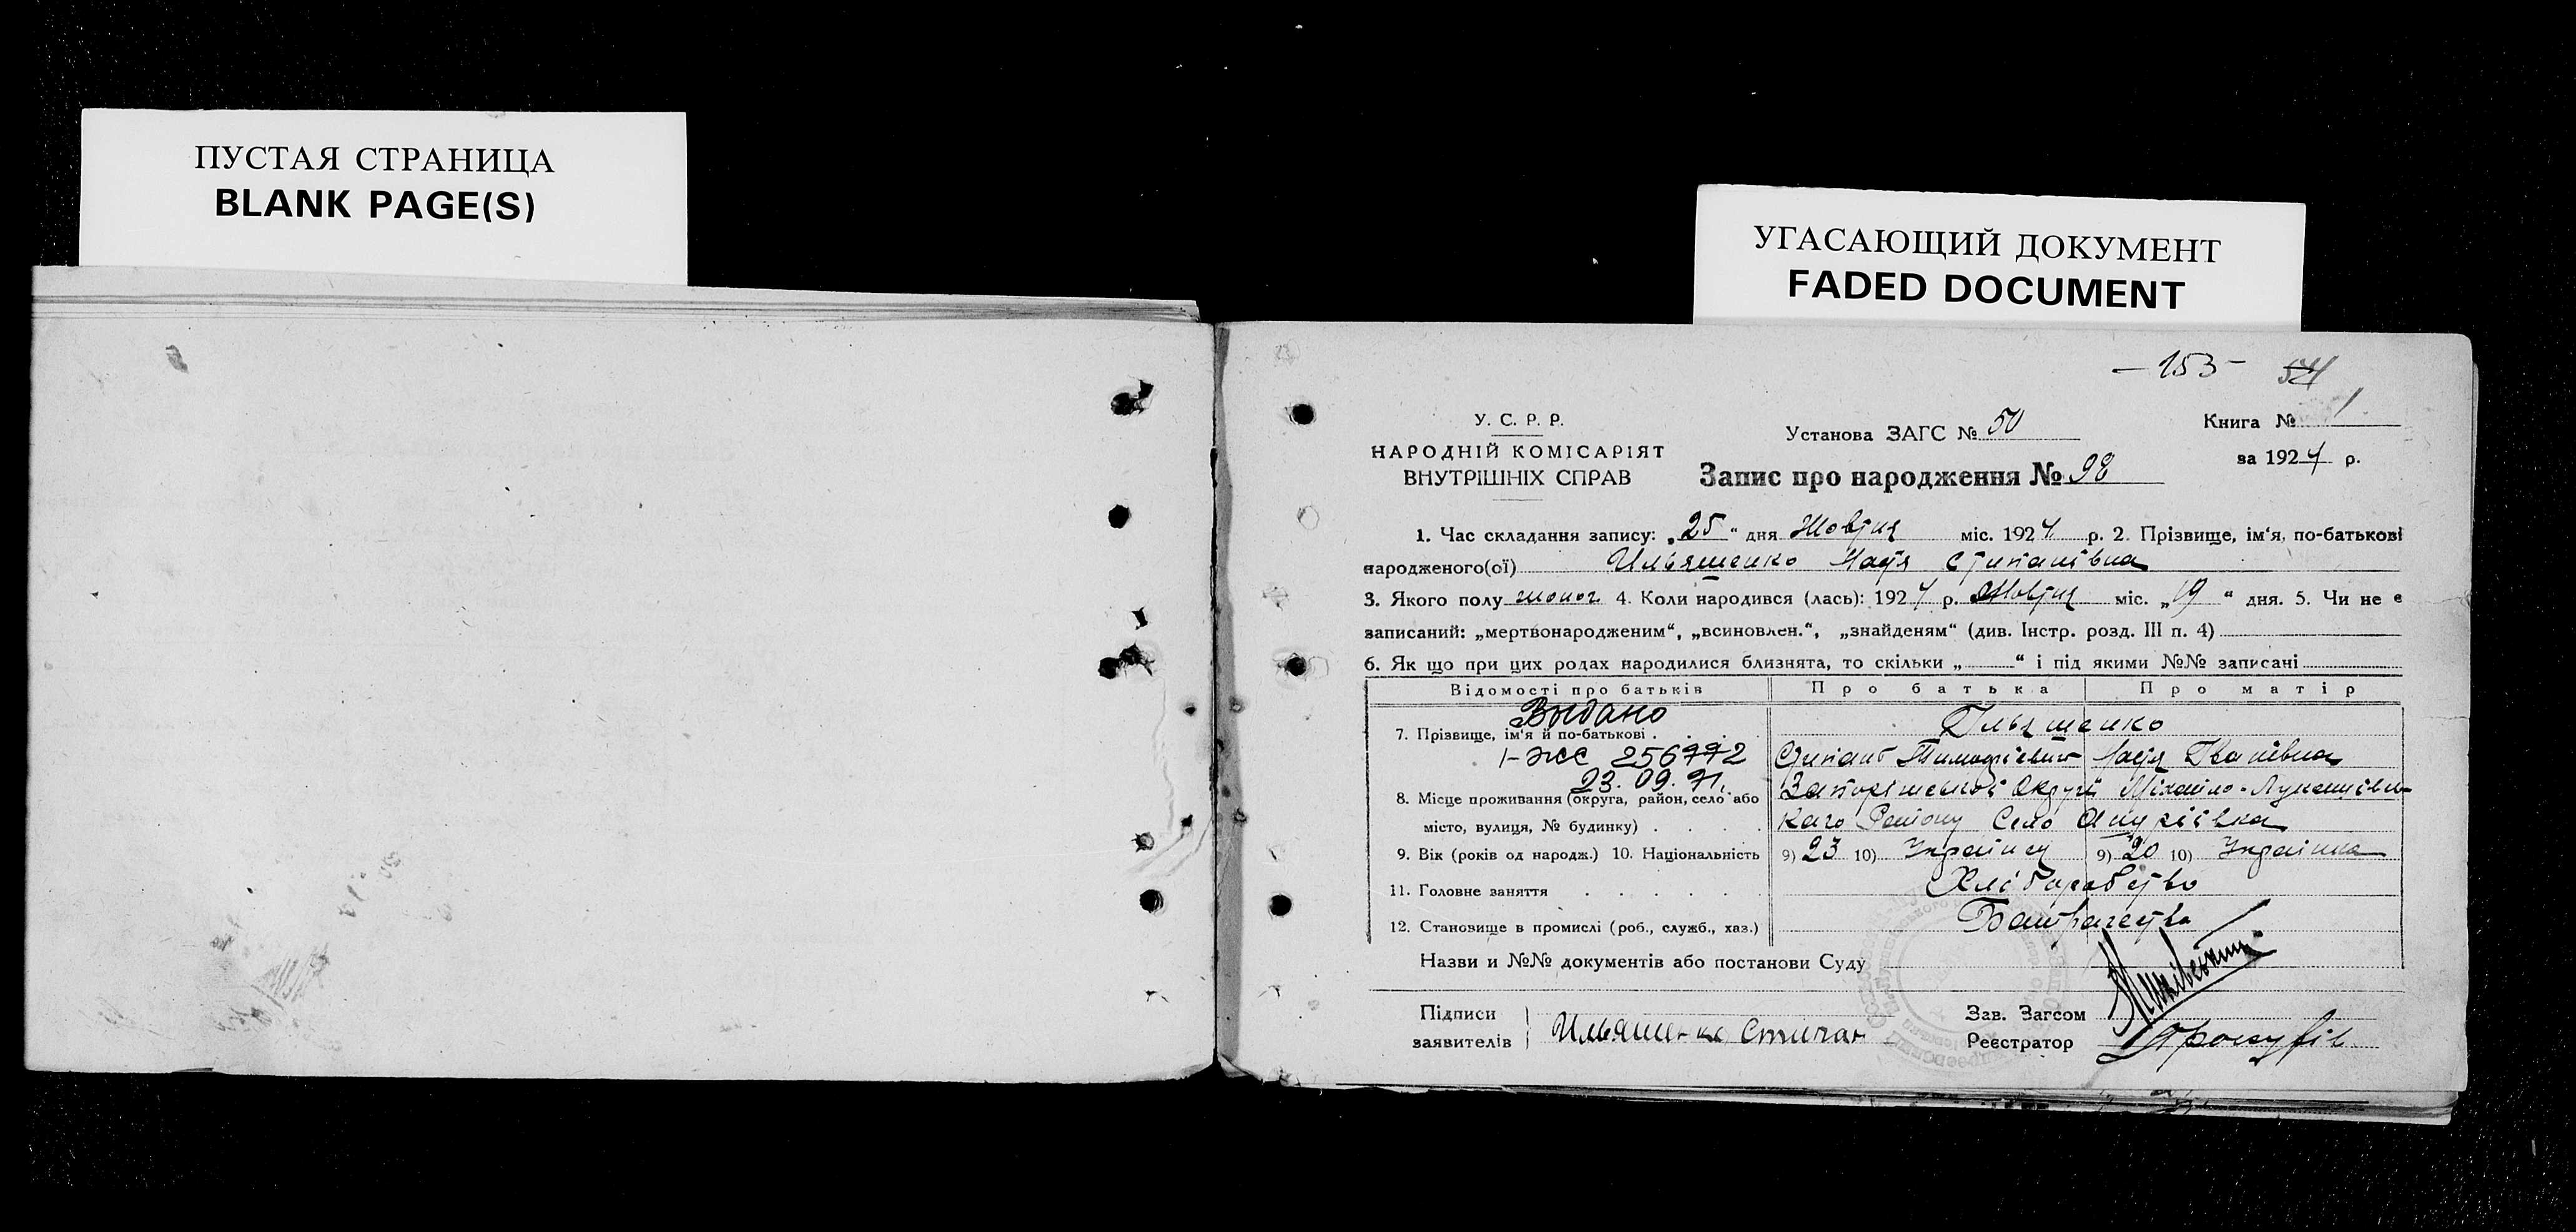 ПУСТАЯ СТРАНИЦА
BLANK PAGE(S)
УГАСАЮЩИЙ ДОКУМЕНТ
FADED DOCUMENT
— 153 — 54
У. С. Р. Р.
НАРОДНІЙ КОМІСАРІЯТ
ВНУТРІШНІХ СПРАВ
Установа ЗАГС № 50
Книга № 1
за 1924 р.
Запис про народження № 98
1. Час складання запису: „25“ дня Жовтня міс. 1924 р. 2. Прізвище, ім'я, по-батькові
народженого(ої) Ильяшенко Настя Стипанівна
3. Якого полу жоноч 4. Коли народився (лась): 1924 р. Жовтня міс. „19“ дня. 5. Чи не є
записаний: „мертвонародженим“, „всиновлен.“, „знайденям“ (див. Інстр. розд. III п. 4)
6. Як що при цих родах народилися близнята, то скільки „ “ і під якими №№ записані
Відомості про батьків Про батька Про матір
Выдано
7. Прізвище, ім'я й по-батькові . . . . Ільяшенко
I-ЖС 256772 Стипанъ Тимофієвич Настя Іванівна
23.09.71.
8. Місце проживання (округа, район, село або Запоріжської Округи Міхайло-Лукашівс-
місто, вулиця, № будинку) . . . . кого Району Село
9. Вік (років од народж.) 10. Національність 9) 23 10) Українец 9) 20 10) Українка
11. Головне заняття . . . . . . Хліборобство
12. Становище в промислі (роб., служб., хаз.) Батрачество
Назви и №№ документів або постанови Суду
Підписи
заявителів Ильяшенко Стипан
Зав. Загсом
Реєстратор